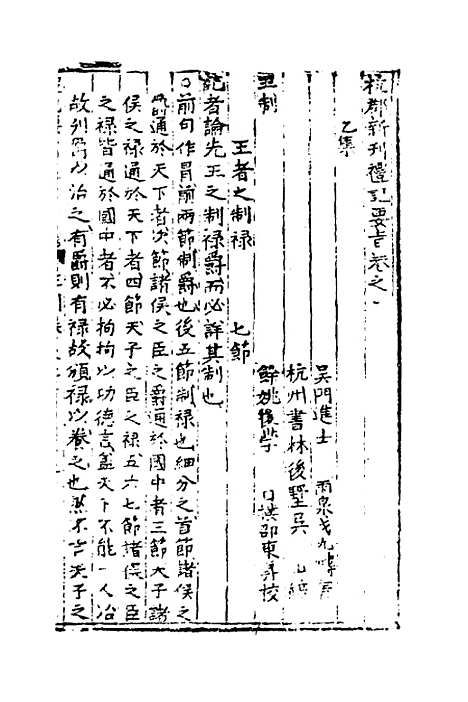 杭郡新刊禮記要旨卷之
乙集
吳門進士 雨泉戈九疇
杭州書林後墅吳
餘姚後學 邵東昇校
王制
王者之制祿 七節
記者論先王之制祿爵而必詳其制也
○前句作冒前兩節制爵也後五節制祿也細分之首節諸侯之
爵通於天下者次節諸侯之臣之爵通於國中者三節天子諸
侯之祿通於天下者四節天子之臣之祿五六七節諸侯之臣
之祿皆通於國中者不必拘拘以功德言蓋天下不能一人治
故列爵以治之有爵則有祿故頒祿以養之也然不言天子之